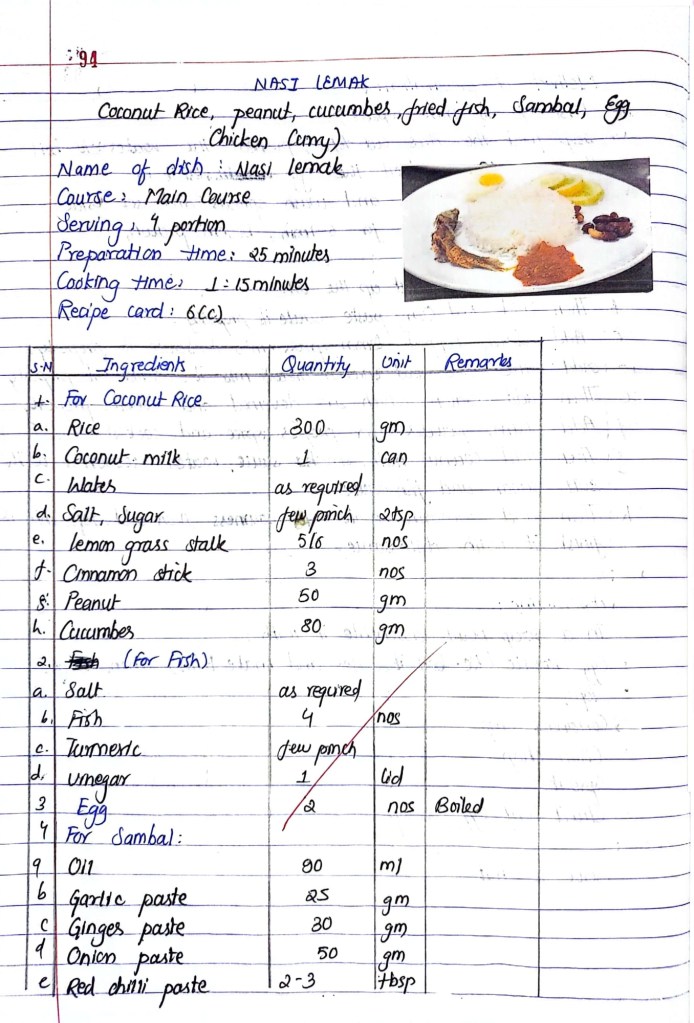 94
NASI LEMAK
Coconut Rice, peanut, cucumber, fried fish, Sambal, Egg
Chicken Curry)
Name of dish : Nasi lemak
Course: Main Course
Serving: 4 portion
Preparation time: 25 minutes
Cooking time: 1:15 minutes
Recipe card: 6(c)
S.N Ingredients Quantity Unit Remarks
1. For Coconut Rice
a. Rice 300 gm
b. Coconut milk 1 can
c. Water as required
d. Salt, Sugar few pinch 2tsp
e. lemon grass stalk 5/6 nos
f. Cinnamon stick 3 nos
g. Peanut 50 gm
h. Cucumber 80 gm
2. (For Fish)
a. Salt as required
b. Fish 4 nos
c. Turmeric few pinch
d. vinegar 1 lid
3 Egg 2 nos Boiled
4 For Sambal:
a Oil 90 ml
b Garlic paste 25 gm
c Ginger paste 30 gm
d Onion paste 50 gm
e Red chilli paste 2-3 tbsp